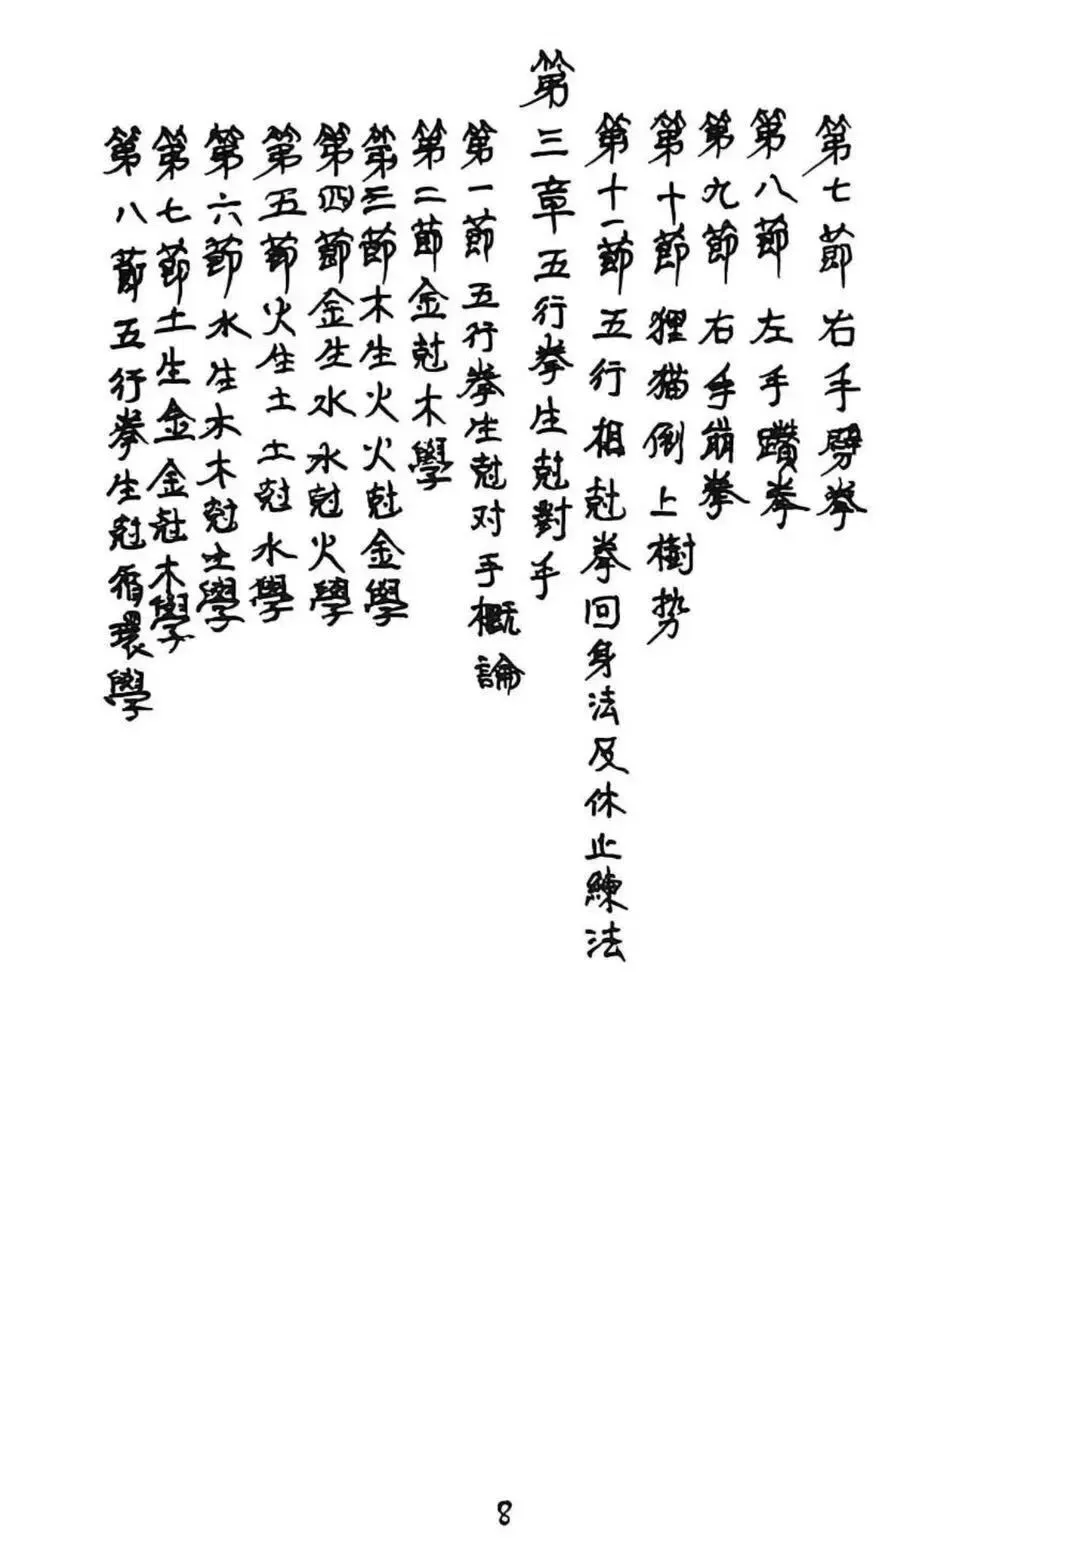 第七節右手劈拳
第八節左手躦拳
第九節右手崩拳
第十節狸猫倒上樹势
第十一節五行相尅拳回身法及休止練法
第三章五行拳生尅對手
第一節五行拳生尅对手概論
第二節金尅木學
第三節木生火火尅金學
第四節金生水水尅火學
第五節火生土土尅水學
第六節水生木木尅土學
第七節土生金金尅木學
第八節五行拳生尅循環學
8